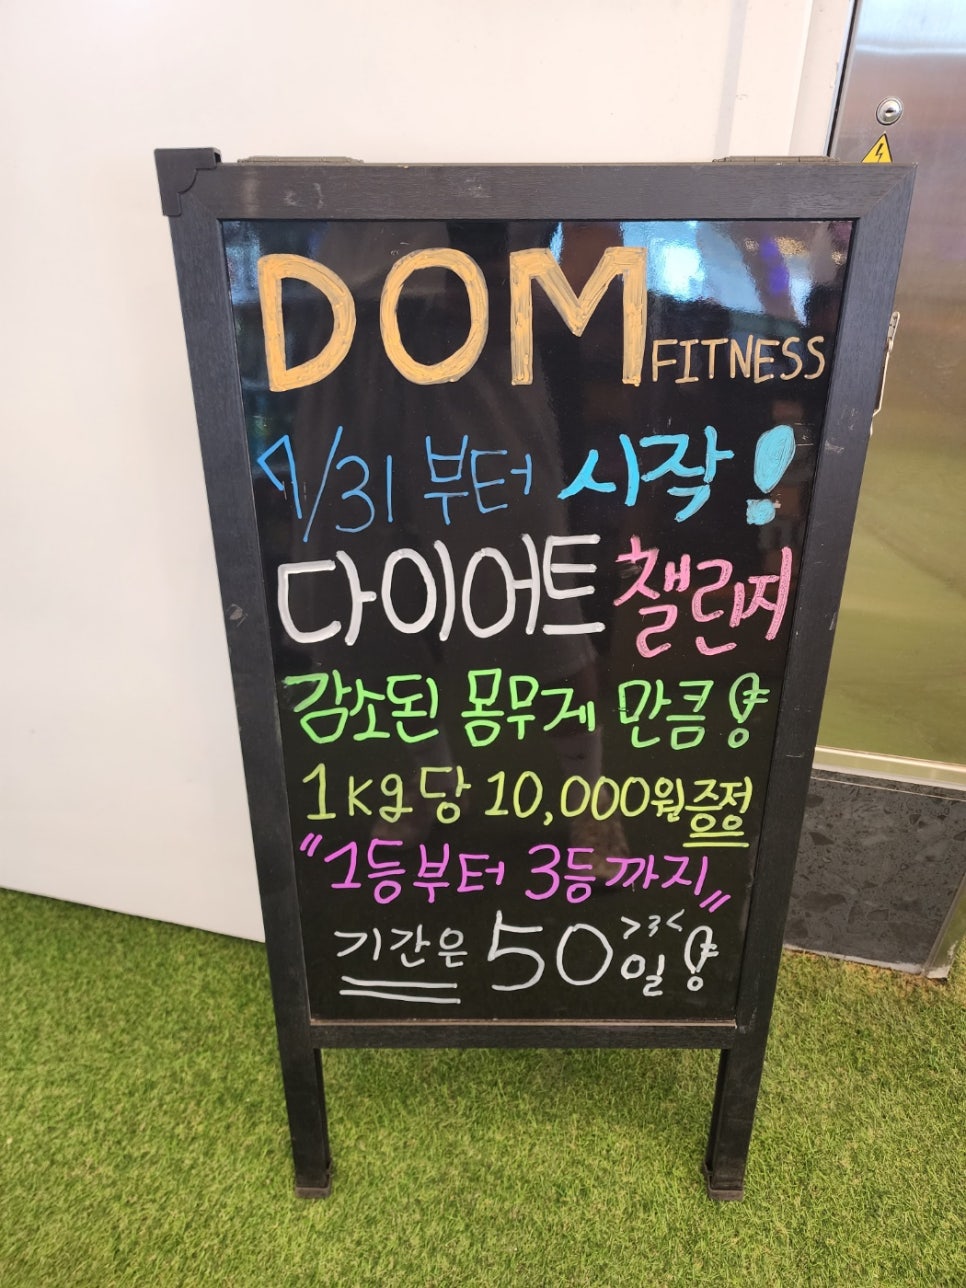 DOM FITNESS
7/31 부터 시작!
다이어트 챌린지
감소된 몸무게 만큼!
1kg당 10,000원 증정
"1등부터 3등까지"
기간은 50일!